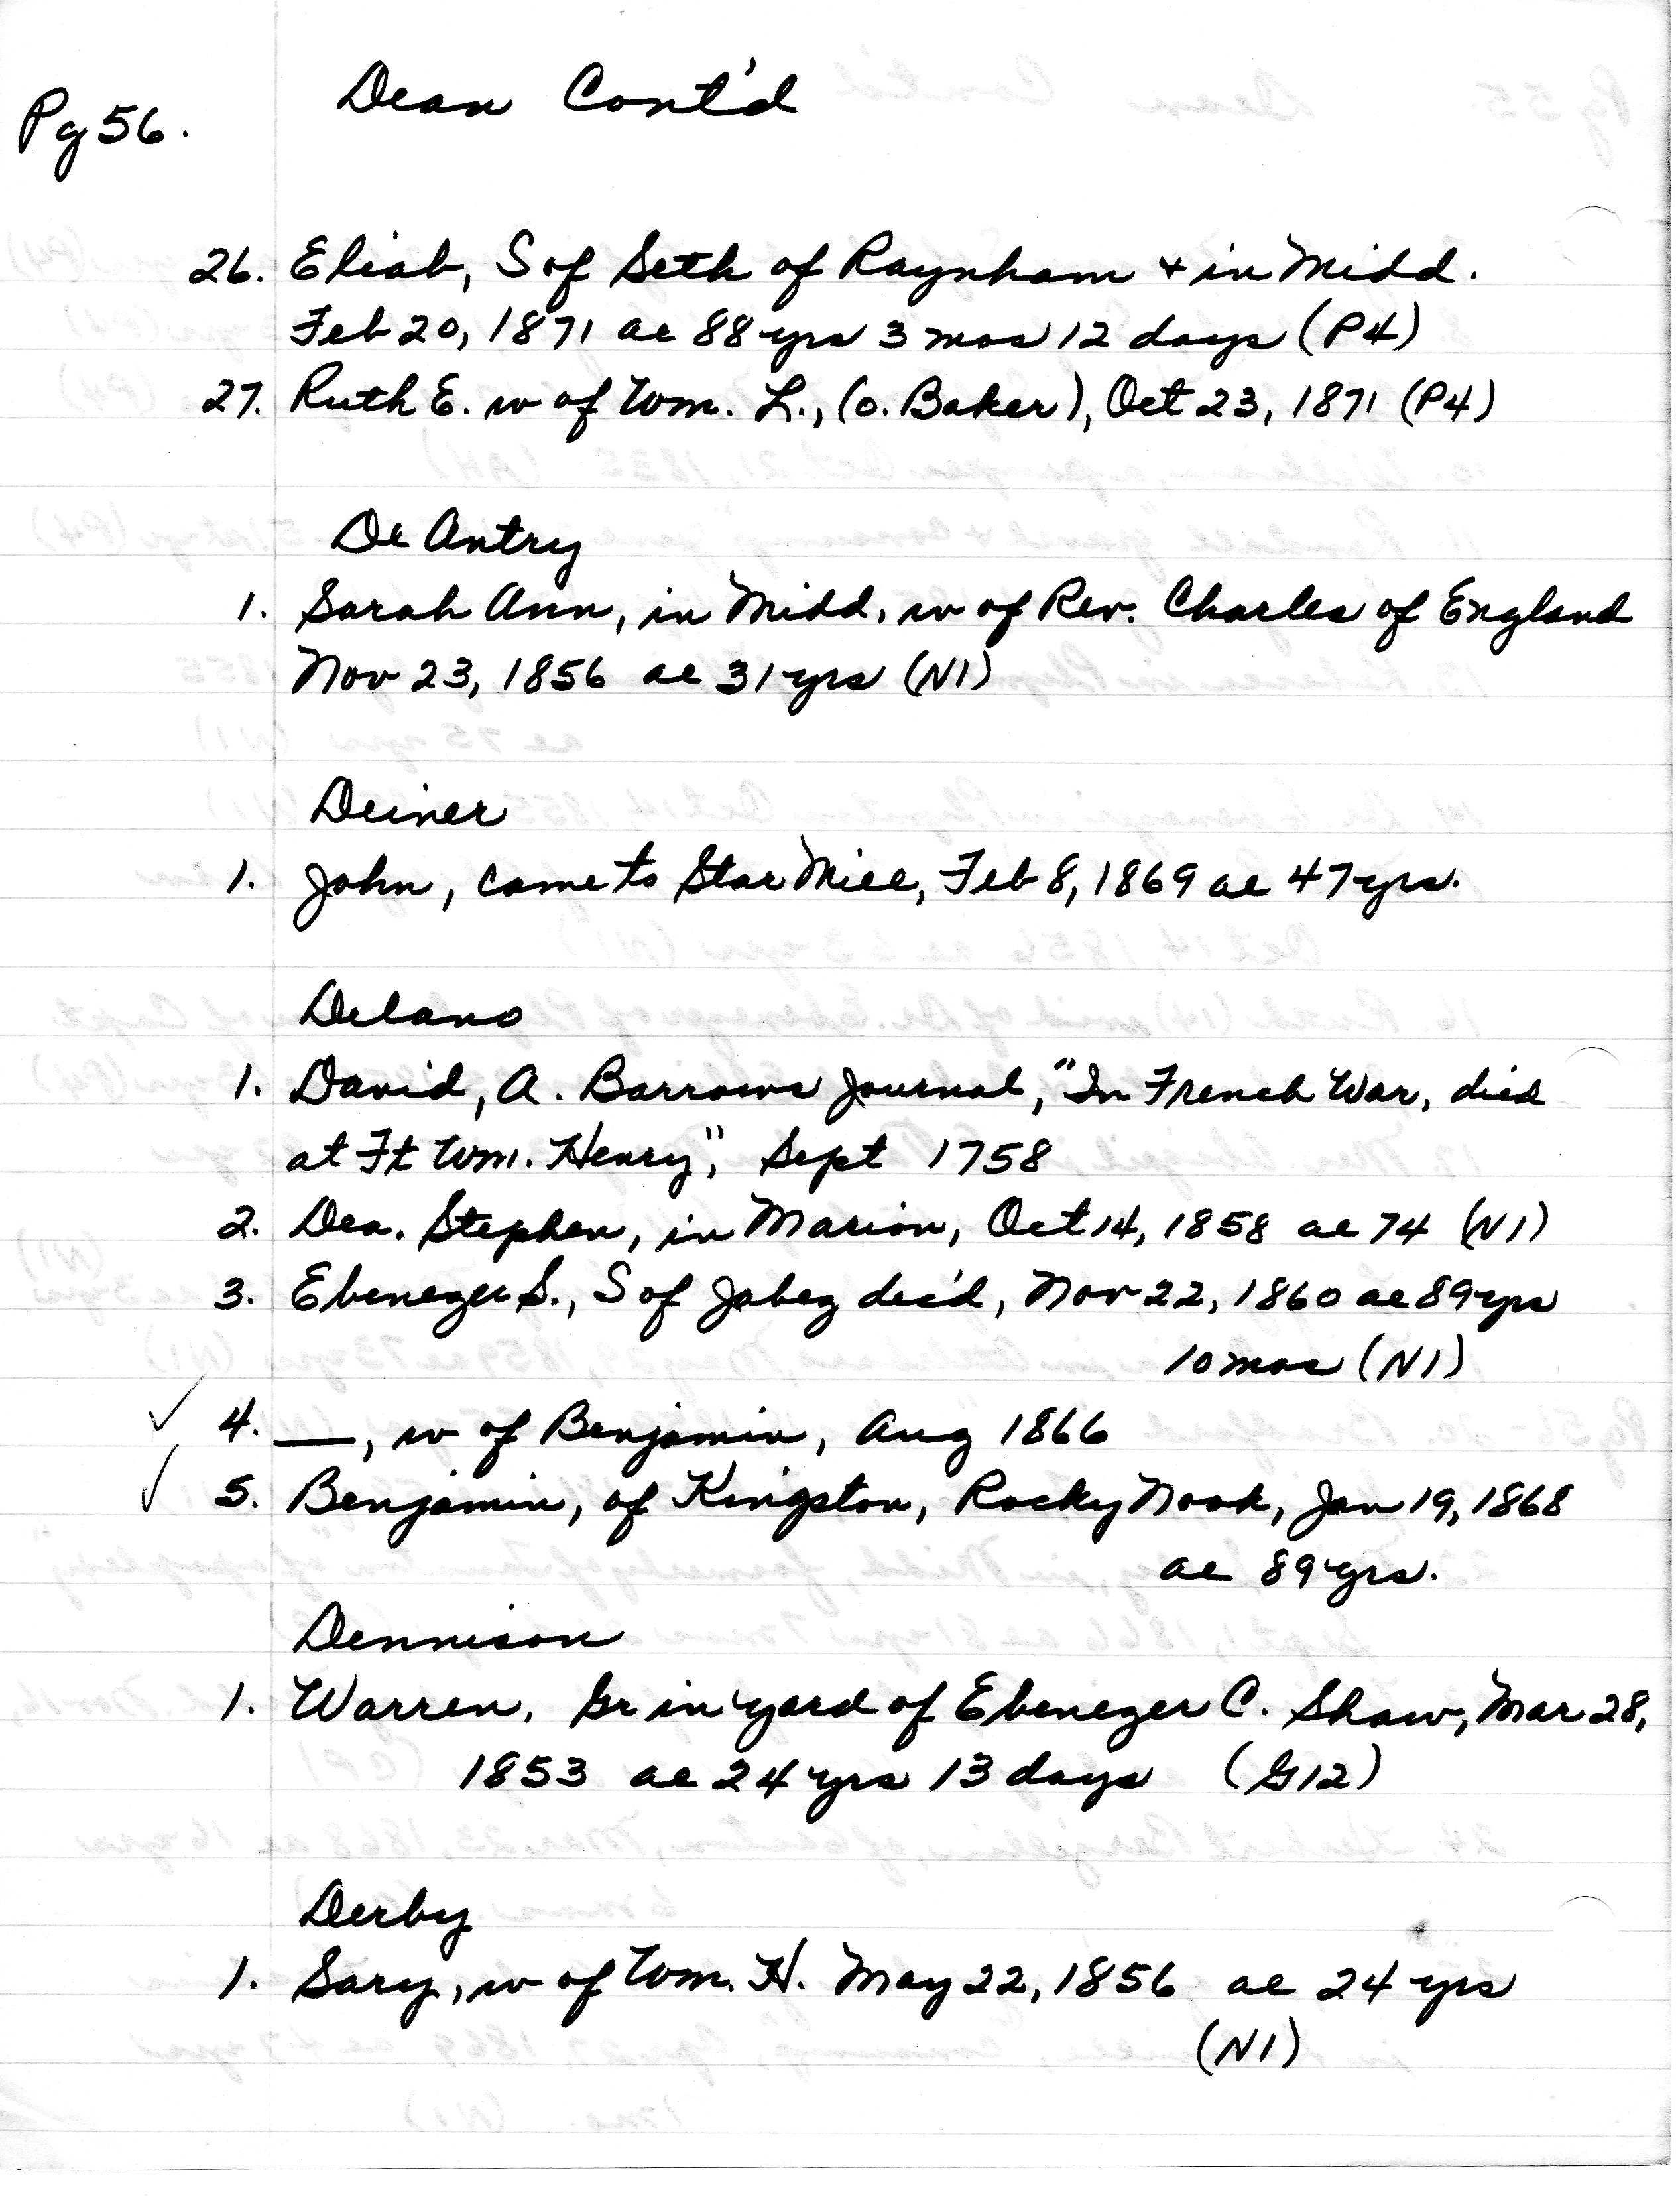 Pg 56.
Dean Cont'd
26. Eliab, S of Seth of Raynham + in Midd.
Feb 20, 1871 ae 88 yrs 3 mos 12 days (P4)
27. Ruth E. w of Wm. L., (o. Baker), Oct 23, 1871 (P4)
De Antry
1. Sarah Ann, in Midd, w of Rev. Charles of England
Nov 23, 1856 ae 31 yrs (N1)
Deiner
1. John, came to Star Mill, Feb 8, 1869 ae 47 yrs.
Delano
1. David, A. Barrows Journal, "In French War, died
at Ft Wm. Henry", Sept 1758
2. Dea. Stephen, in Marion, Oct 14, 1858 ae 74 (N1)
3. Ebenezer S., S of Jabez dec'd, Nov 22, 1860 ae 89 yrs
10 mos (N1)
✓ 4. __, w of Benjamin, Aug 1866
✓ 5. Benjamin, of Kingston, Rocky Nook, Jan 19, 1868
ae 89 yrs.
Dennison
1. Warren, Gr in yard of Ebenezer C. Shaw, Mar 28,
1853 ae 24 yrs 13 days (G12)
Derby
1. Sary, w of Wm. H. May 22, 1856 ae 24 yrs
(N1)